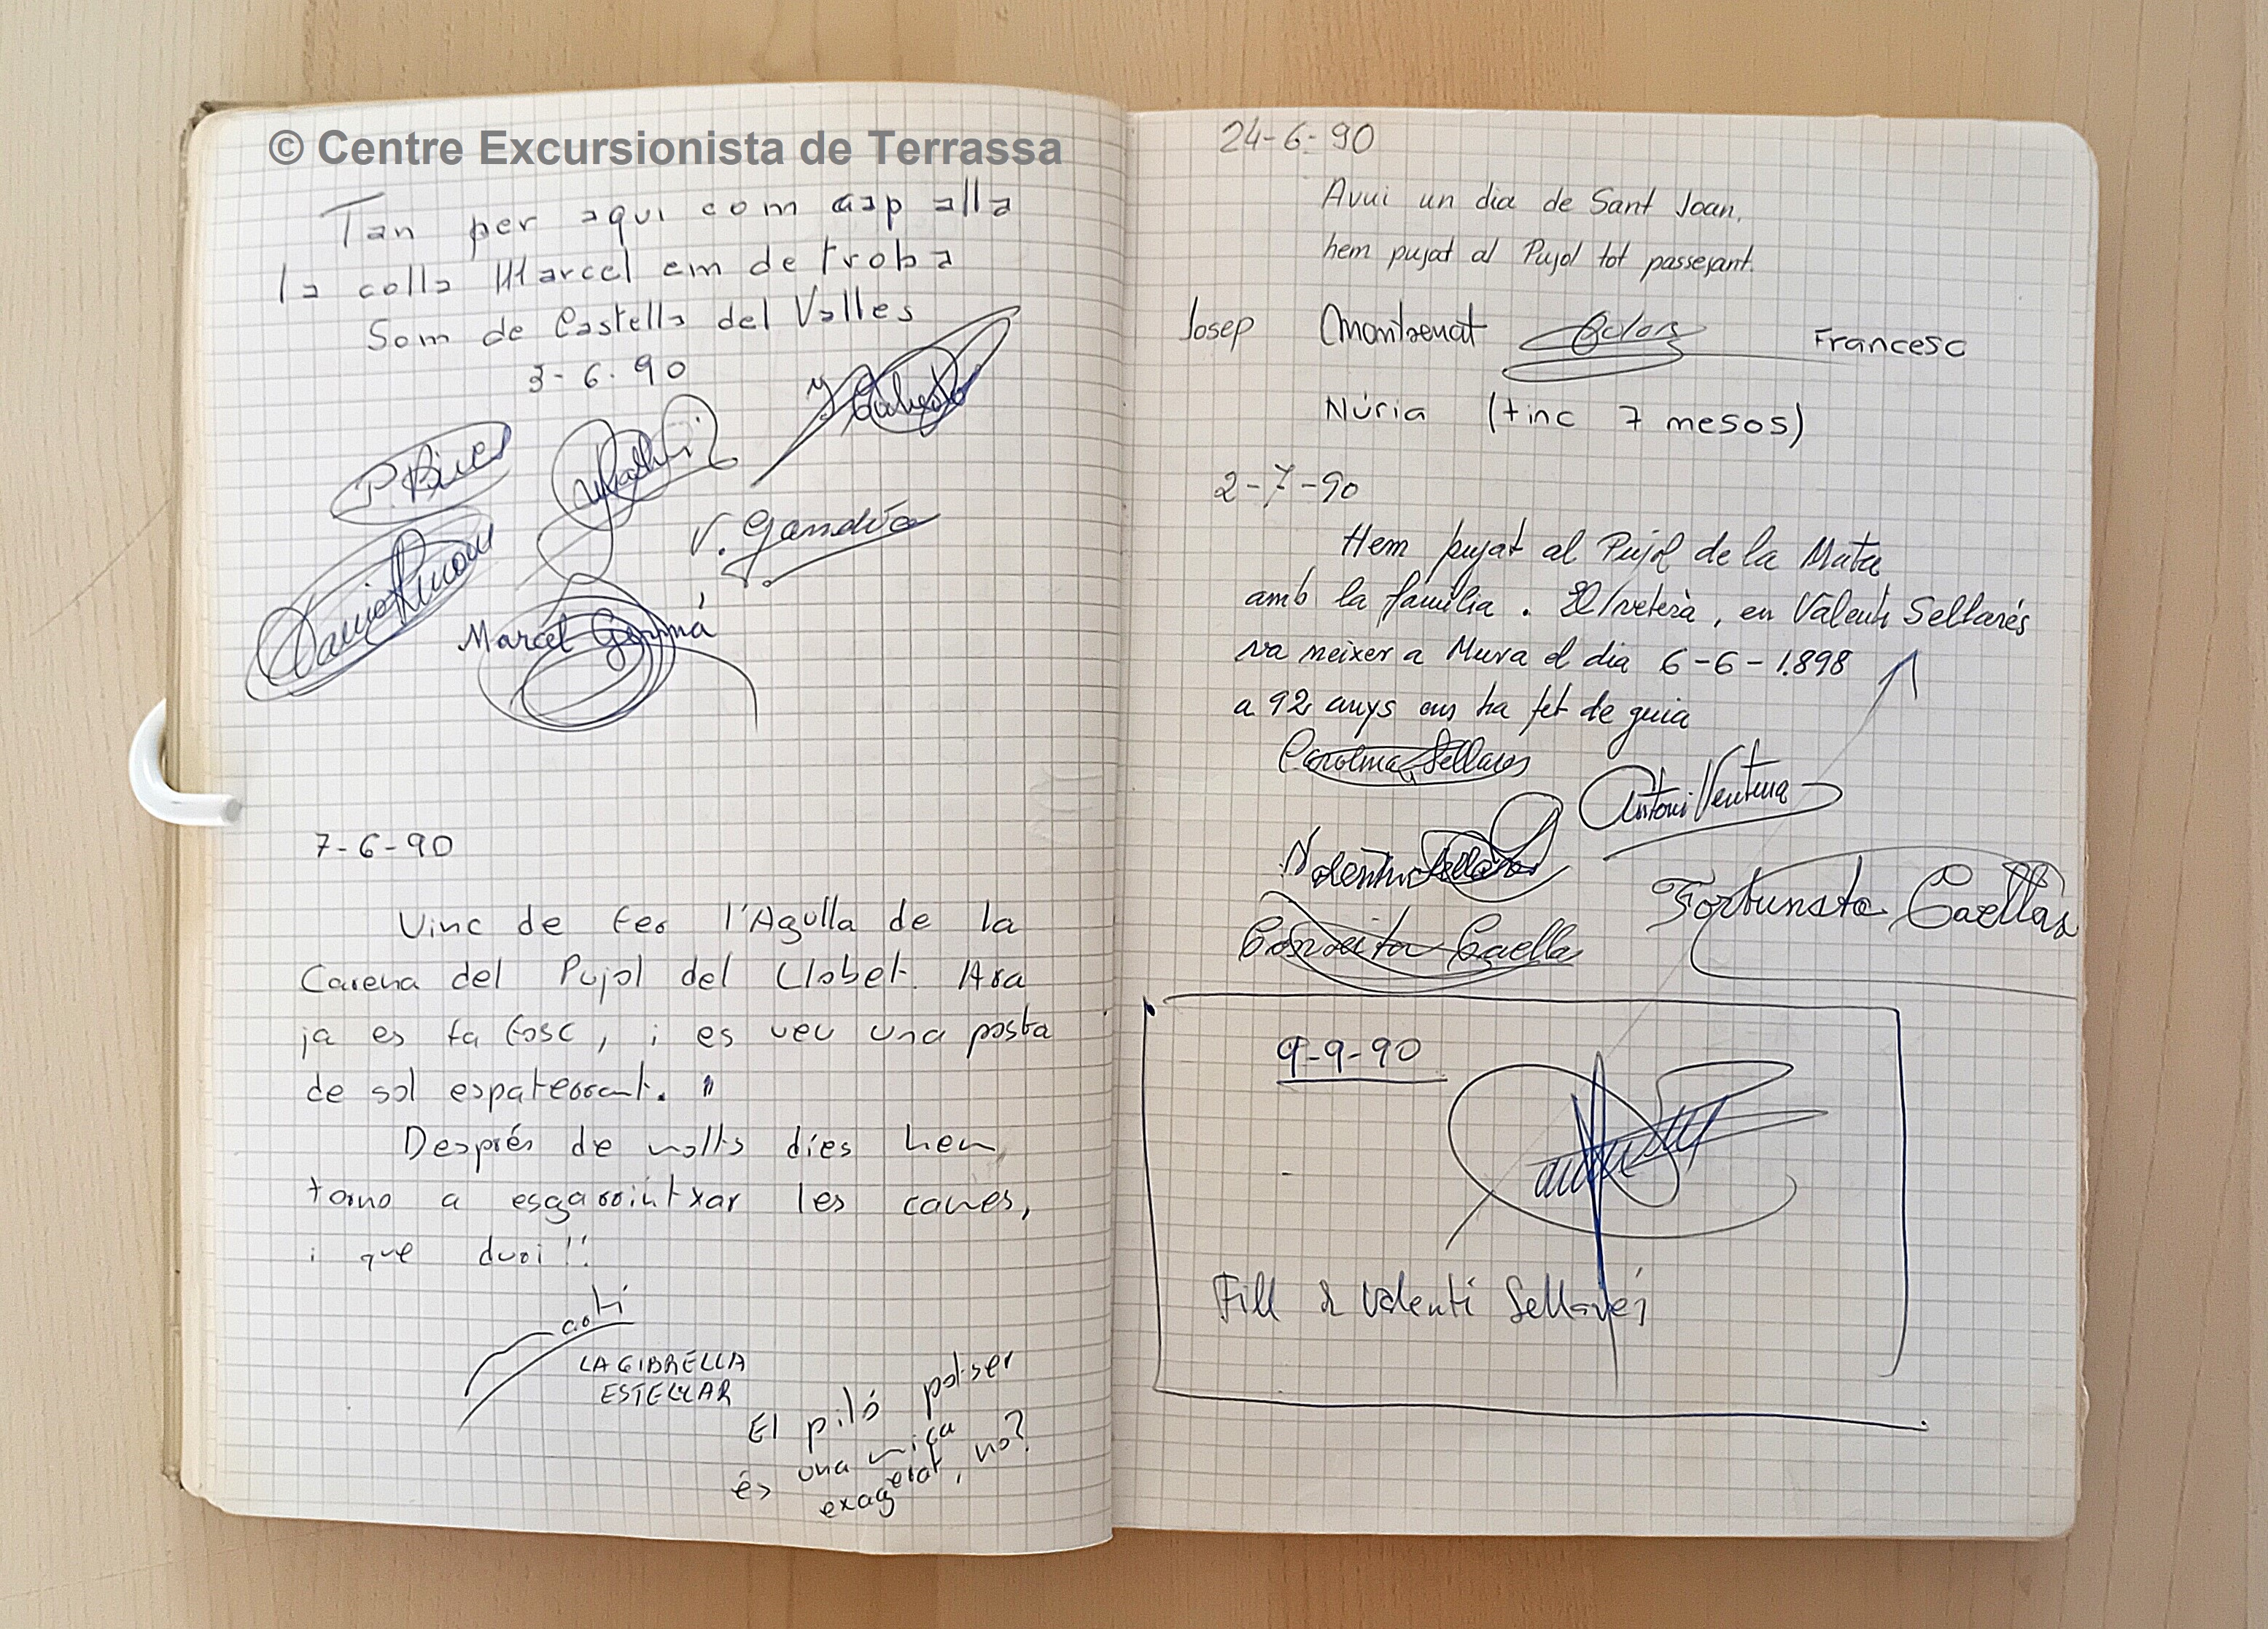 © Centre Excursionista de Terrassa
Tan per aqui com cap alla
la colla Marcel em de troba
Som de Castella del Valles
3-6-90
P. Rives
V. Gandía
Marcel Germá
7-6-90
Vinc de fer l'Agulla de la
Carena del Pujol del Llobet. Ara
ja es fa fosc, i es veu una posta
de sol espaterrant.
Després de molts dies hem
torno a esgarrintxar les cames,
i que duri!!
LA GIBRELLA
ESTELLAR
El piló pot-ser
és una miça
exagerat, no?
24-6-90
Avui un dia de Sant Joan,
hem pujat al Pujol tot passejant.
Josep Montserrat Francesc
Núria (tinc 7 mesos)
2-7-90
Hem pujat al Pujol de la Mata
amb la família. El veterà, en Valentí Sellarés
va neixer a Mura el dia 6-6-1.898
a 92 anys ens ha fet de guia
Carolina Sellares
Antoni Ventura
Valentin Sellares
Fortunata Caellas
Conxita Caella
9-9-90
Fill de Valentí Sellarés